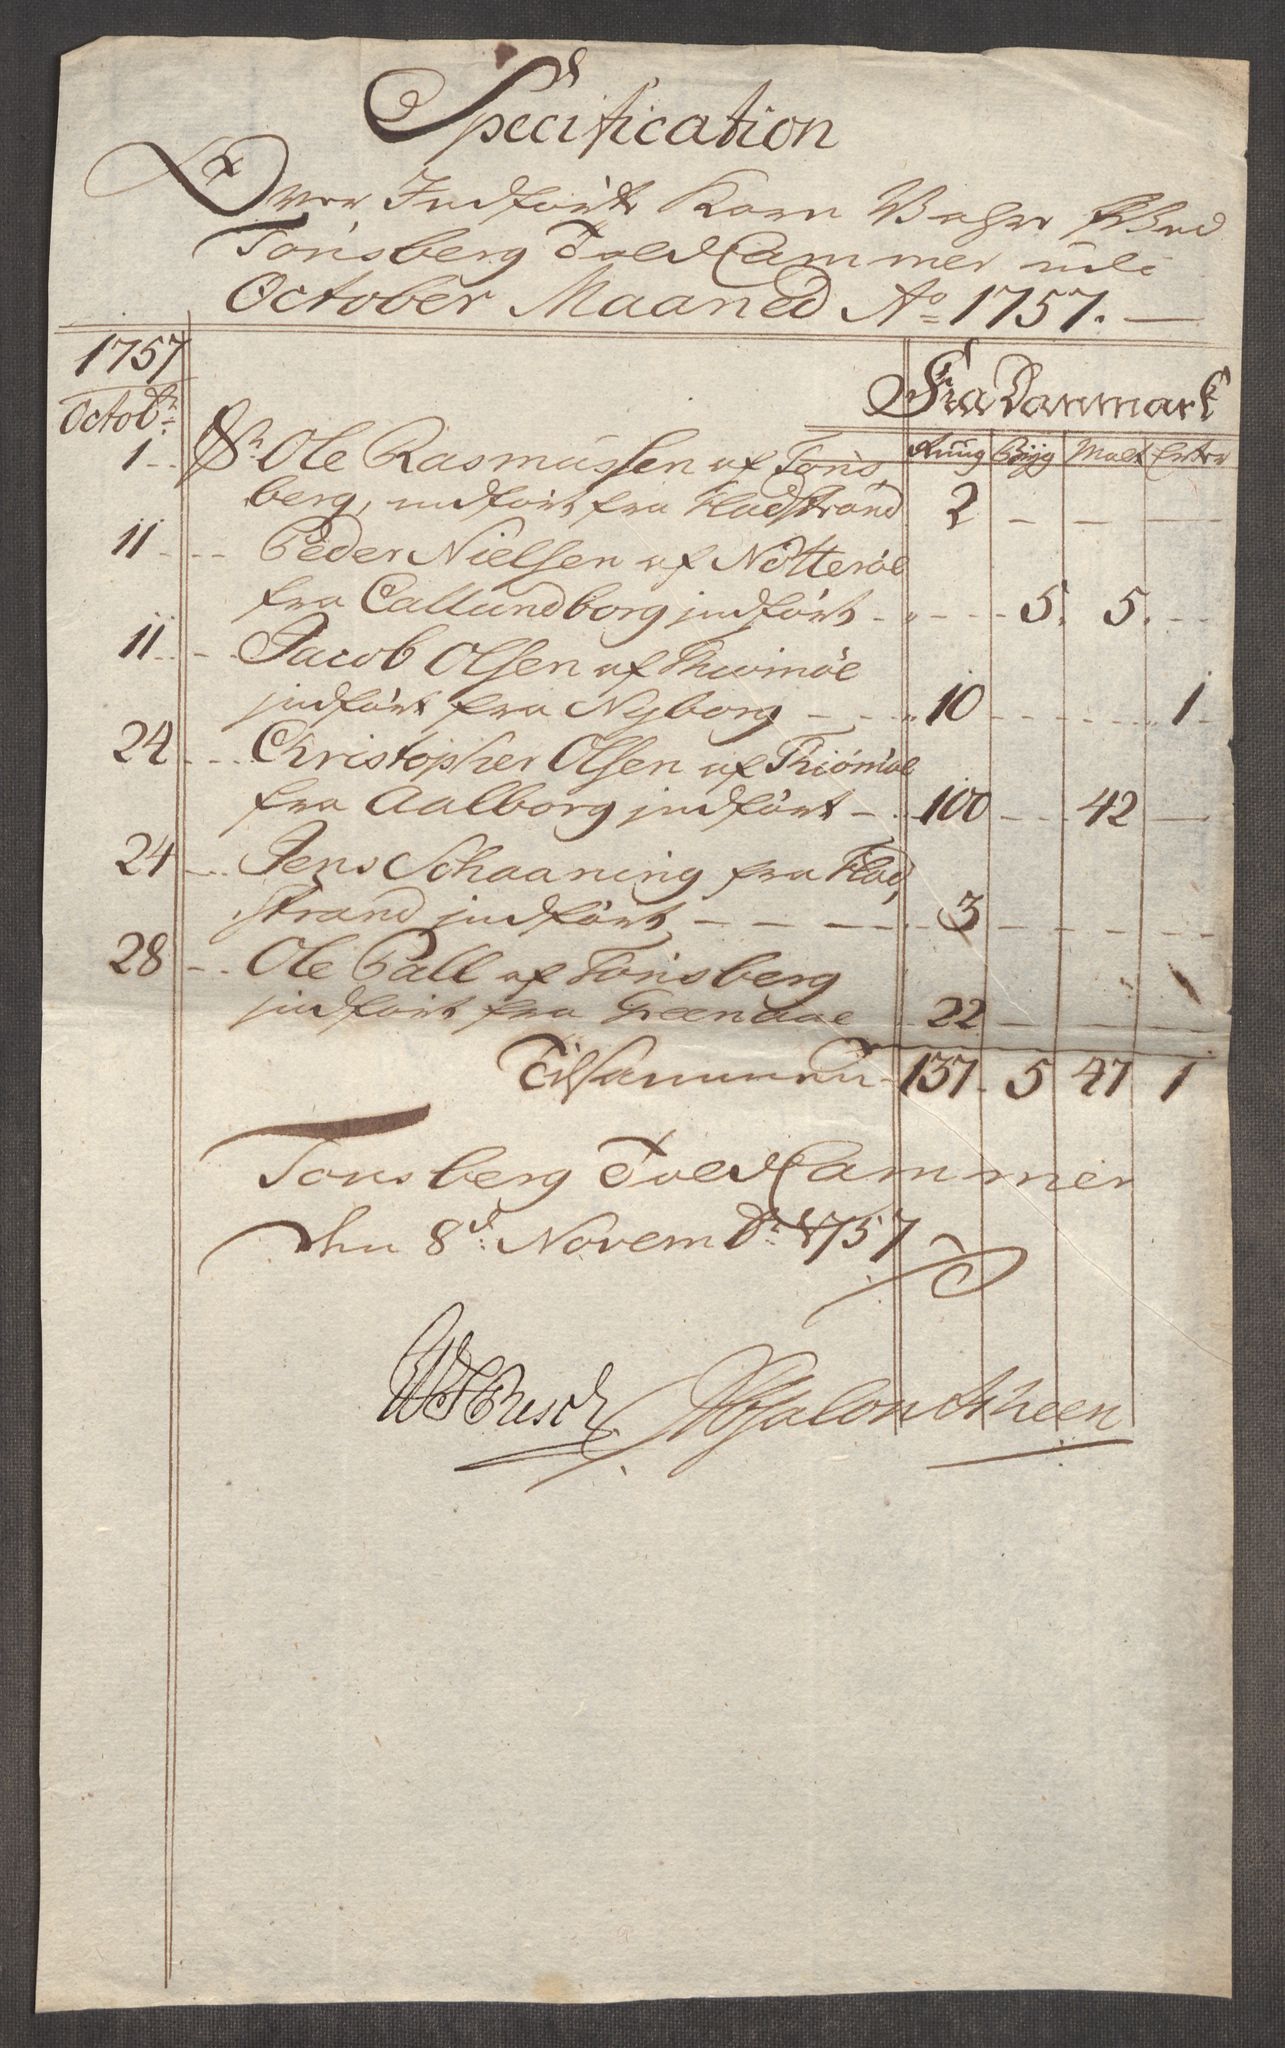 Specification
Over Indførte Korn Vahre ved
Tønsberg Told Cammer udi
October Maaned Ao 1757.
1757
Octobr:
Fra Danmark
Rüug Büyg Malt Erter
1 Sr Ole Rasmussen af Töns,
berg, indført fra Fladstrand 2 - - -
11 Peder Nielsen af Nötteröe
fra Callundborg indført - 5. 5. -
11 Jacob Olsen af
indført fra Nyborg - 10 - - 1
24 Christopher Olsen af Thiömöe
fra Aalborg indført - 100 - 42 -
24 Jens Schaaning fra Flad,
strand indført - 3 - - -
28 Ole Pall af Tönsberg
indført fra Greenaae 22 - - -
Tilsammen - 137 - 5 47 1
Tønsberg Told Cammer
den 8de: Novembr: 1757
Absalon